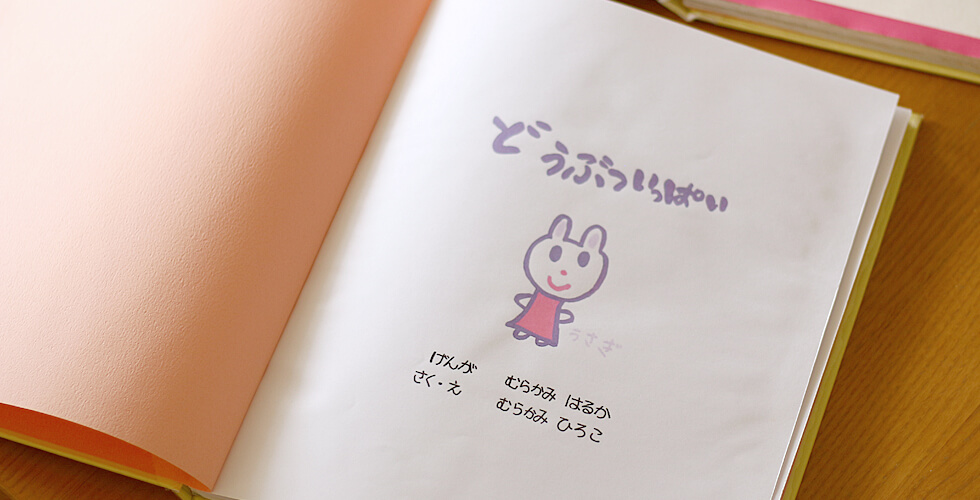 どうぶついっぱい
うさぎ
げんが むらかみ はるか
さく・え むらかみ ひろこ